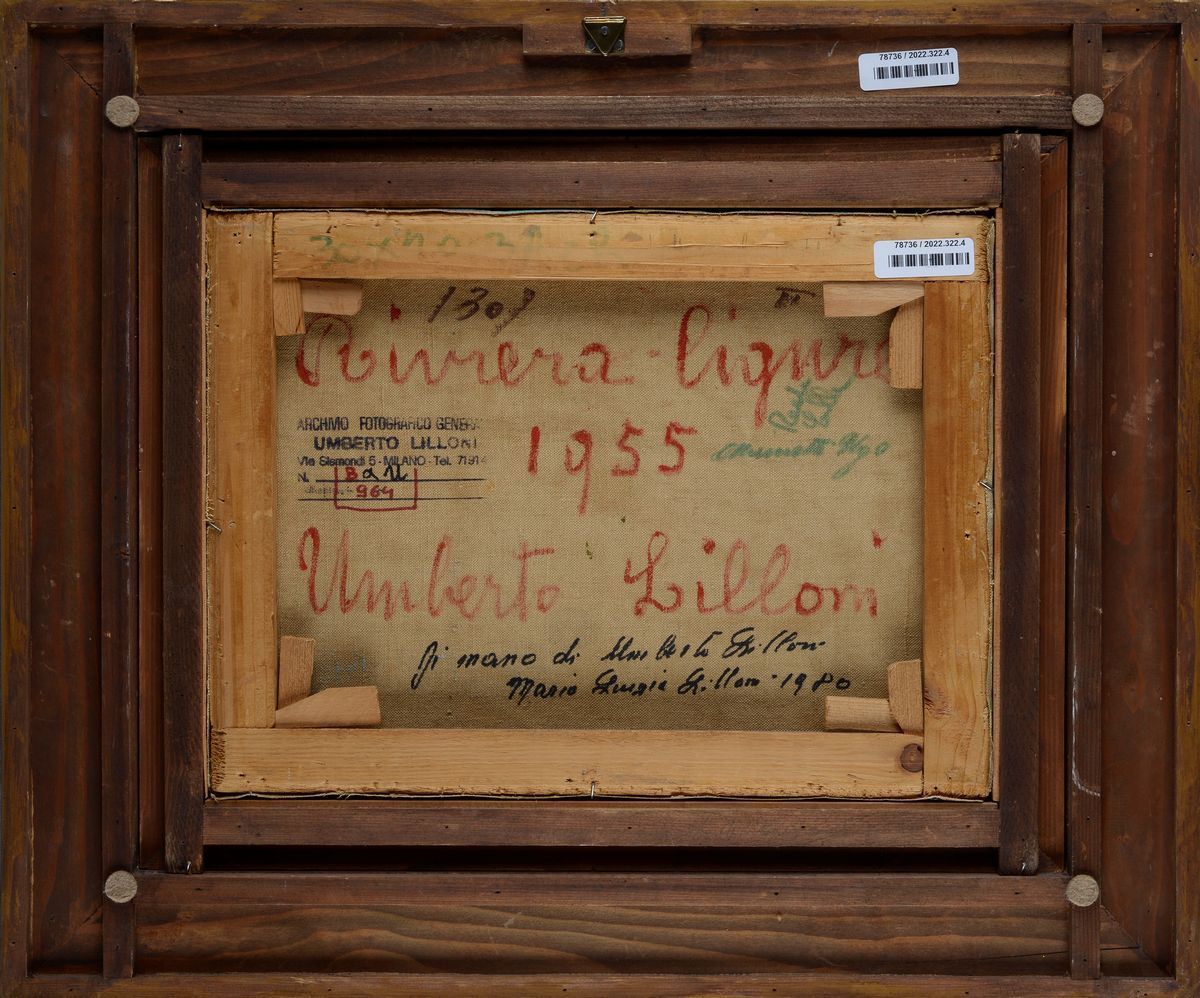 78736 / 2022.322.4
78736 / 2022.322.4
1308
Riviera - ligure
ARCHIVIO FOTOGRAFICO GENERA
UMBERTO LILLONI
Via Sismondi 5 - MILANO - Tel. 71914
N. B a U
964
1955
Umberto Lilloni
Di mano di Umberto Lilloni
Maria Lilloni - 1980